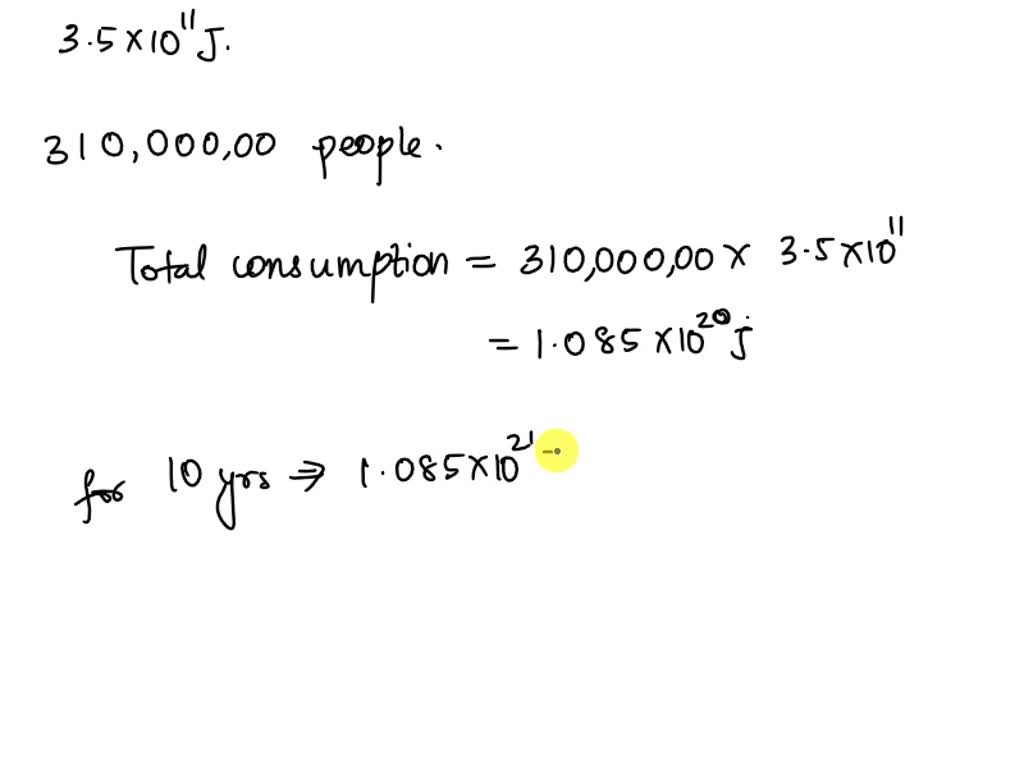 3.5×10¹¹ J.
310,000,00 people.
Total consumption = 310,000,00 × 3.5×10¹¹
= 1.085×10²⁰ j
for 10 yrs ⇒ 1.085×10²¹ -